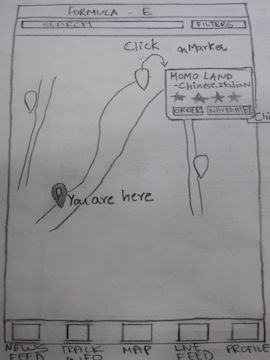 FORMULA - E
SEARCH
FILTERS
Click on Marker
MOMO LAND
-Chinese, Italian
ORDER NAVIGATE
You are here
NEWS FEED
TRACK INFO
MAP
LIVE FEED
PROFILE